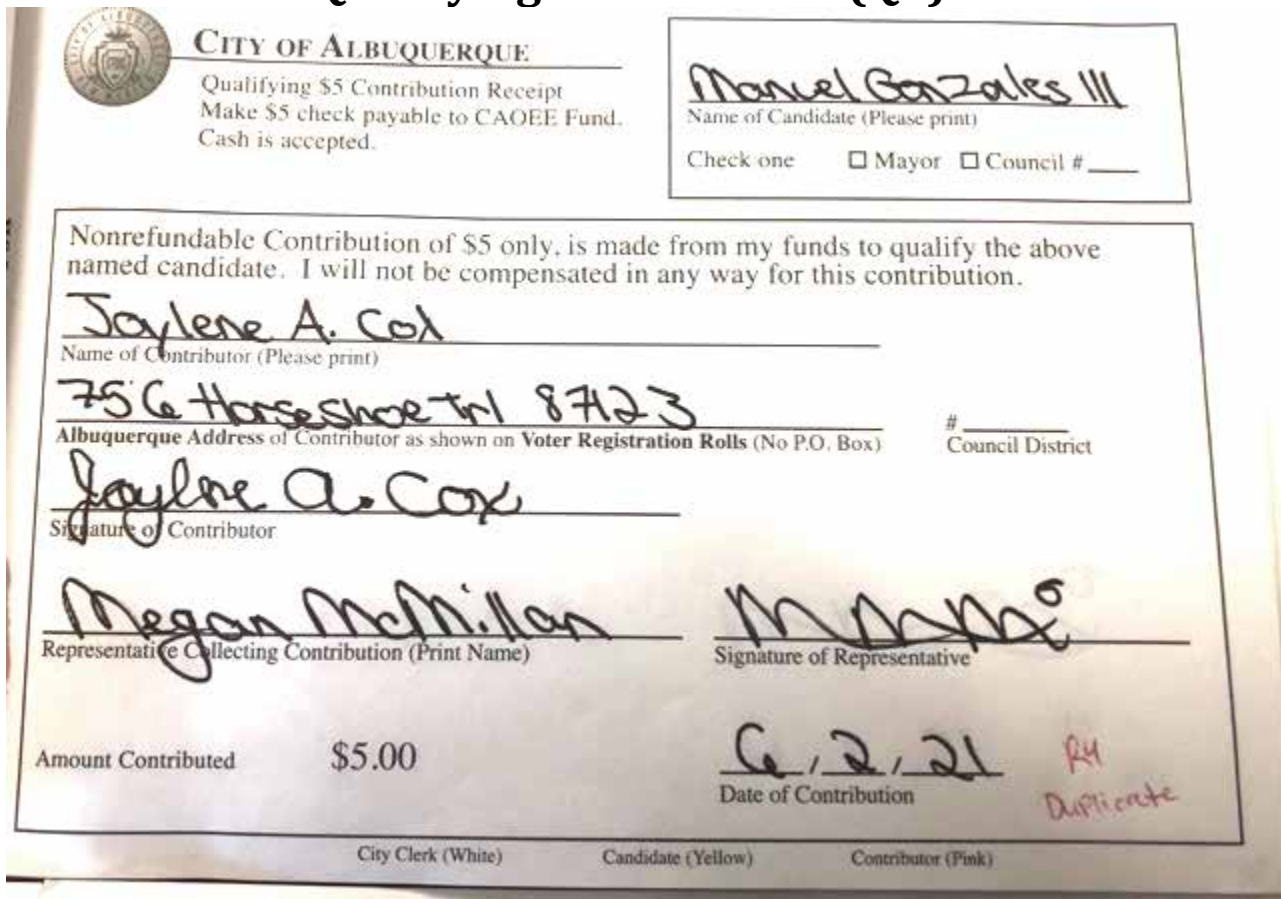 CITY OF ALBUQUERQUE
Qualifying $5 Contribution Receipt
Make $5 check payable to CAOEE Fund.
Cash is accepted.
Manuel Gonzales III
Name of Candidate (Please print)
Check one ☐ Mayor ☐ Council #
Nonrefundable Contribution of $5 only, is made from my funds to qualify the above
named candidate. I will not be compensated in any way for this contribution.
Joylene A. Cox
Name of Contributor (Please print)
756 Horseshoe Trl 87123
Albuquerque Address of Contributor as shown on Voter Registration Rolls (No P.O. Box)
#
Council District
Joylene A. Cox
Signature of Contributor
Megan McMillan
Representative Collecting Contribution (Print Name)
Signature of Representative
Amount Contributed $5.00
6, 2, 21
Date of Contribution
R4
Duplicate
City Clerk (White) Candidate (Yellow) Contributor (Pink)